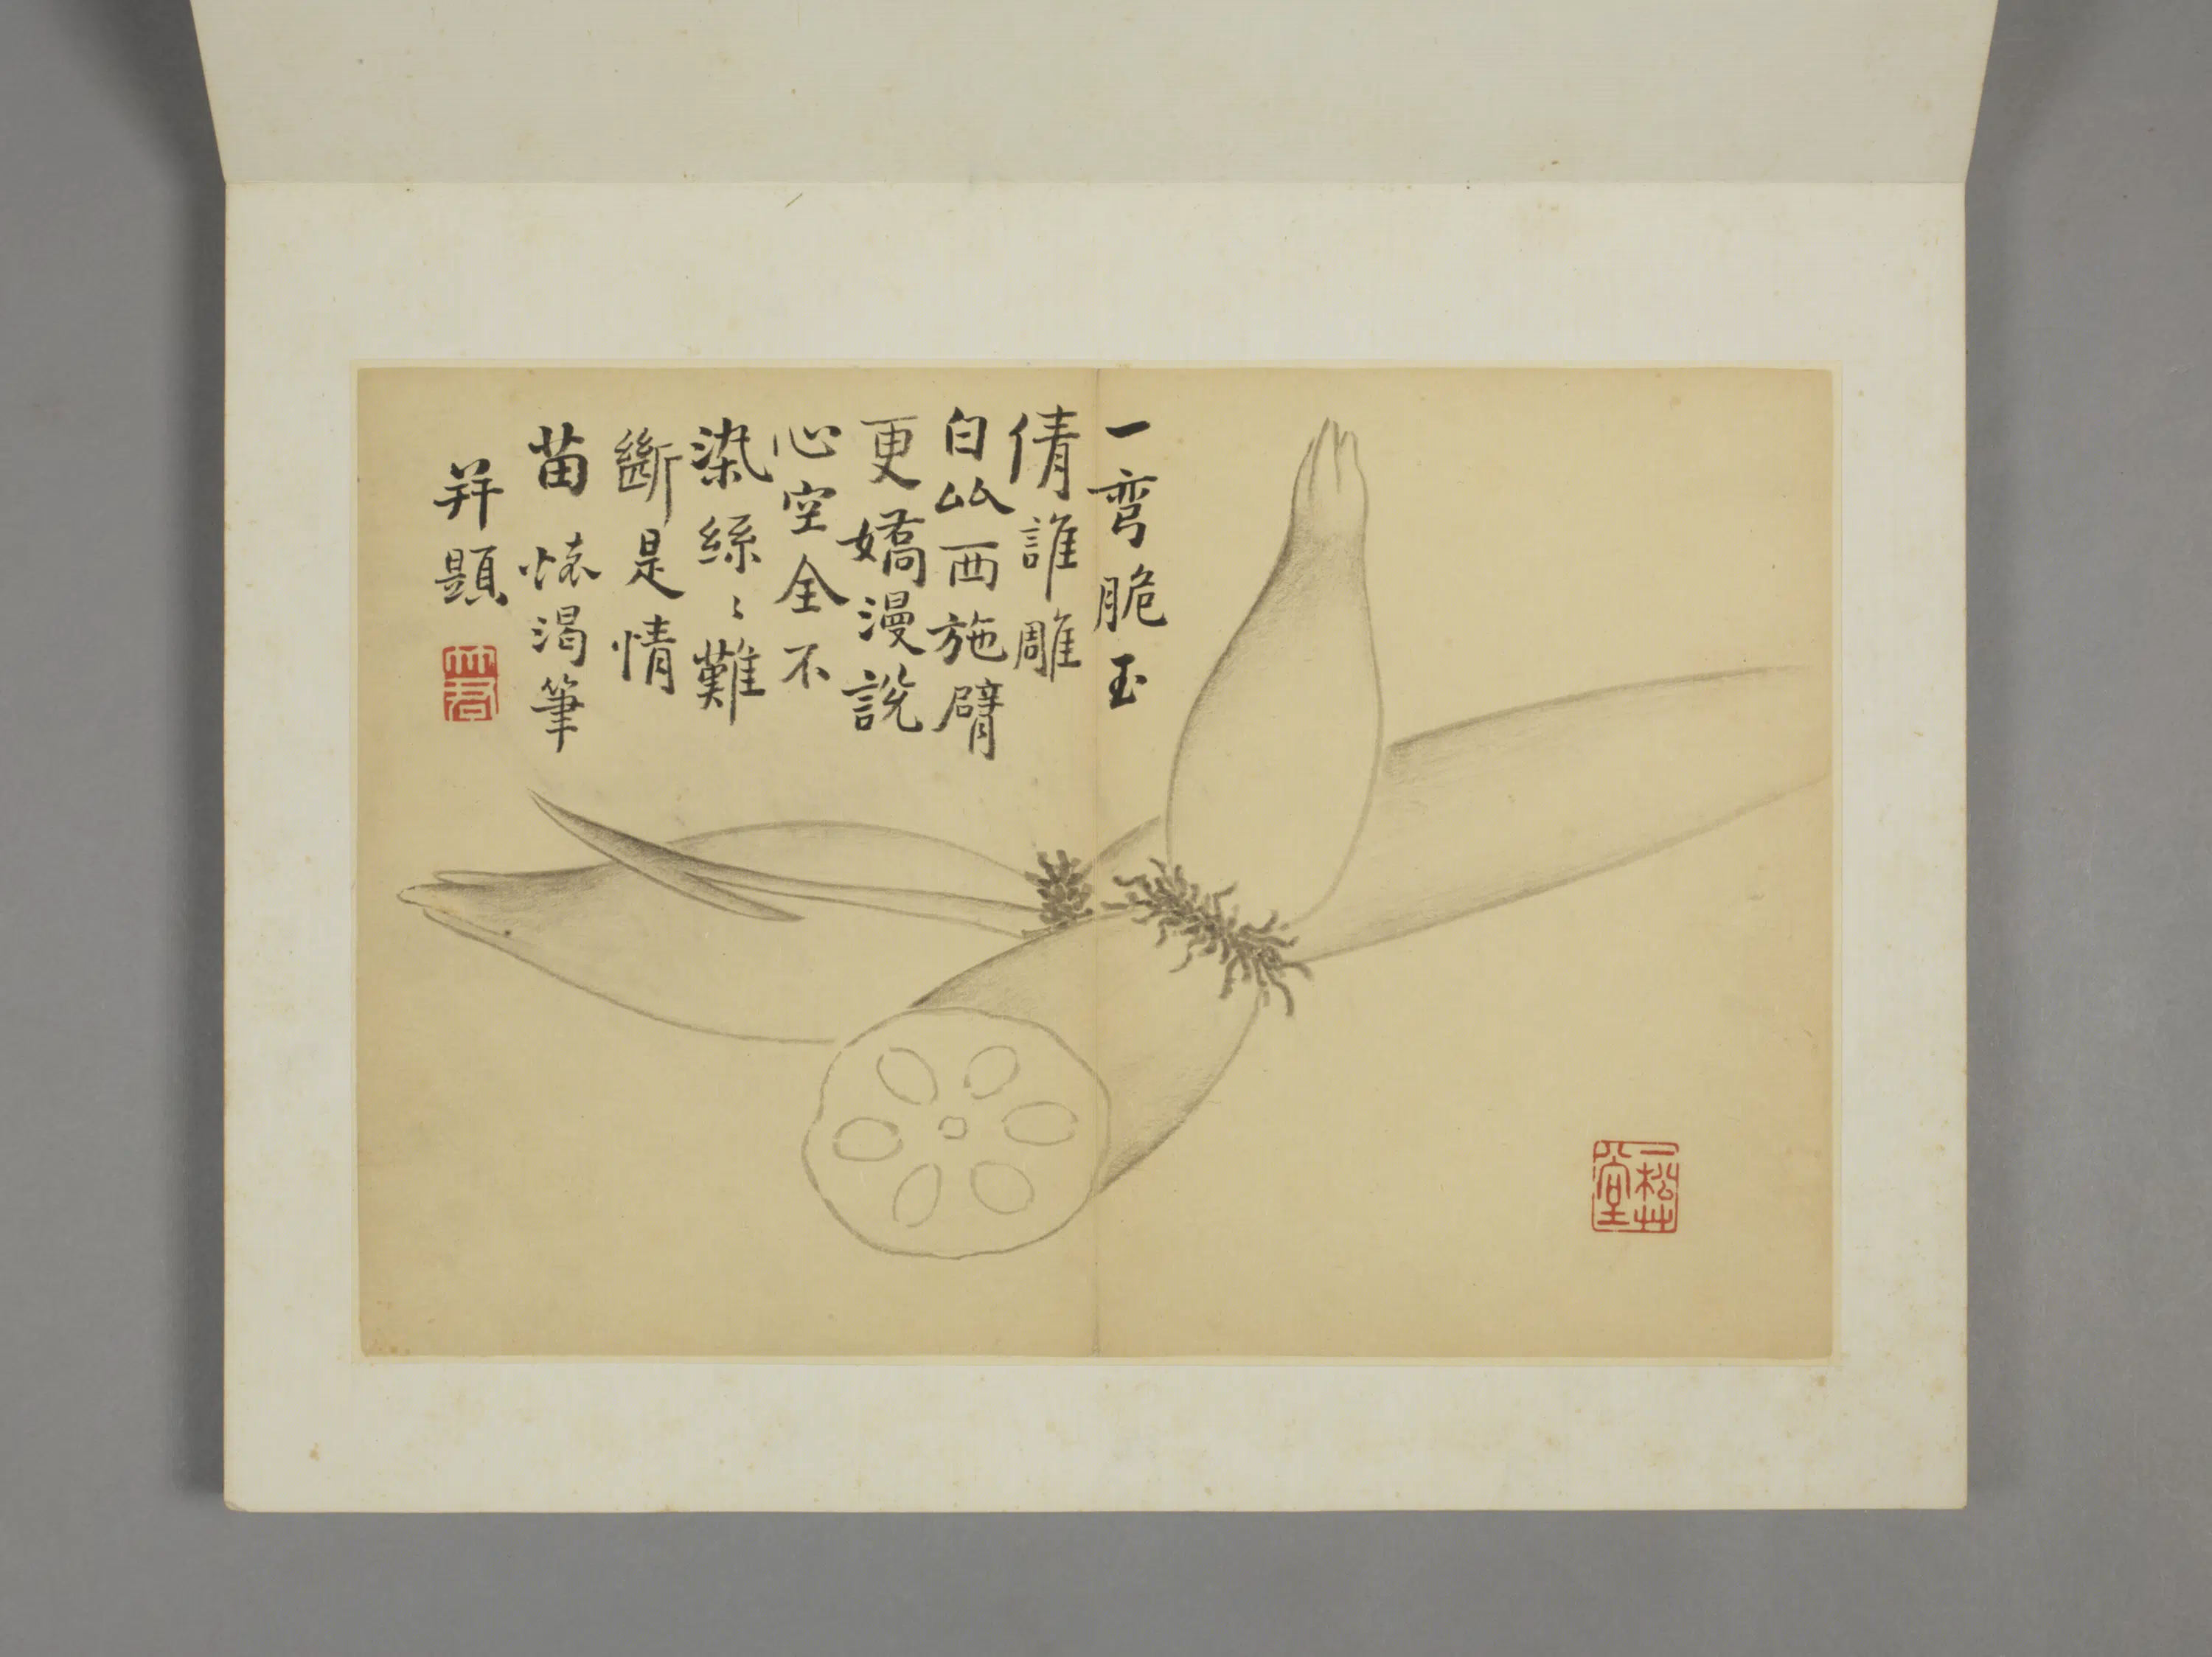 一彎脆玉
倩誰雕
白㕥西施臂
更嬌漫說
心空全不
染絲〻難
斷是情
苗 懷渴筆
并題
一松艸
堂